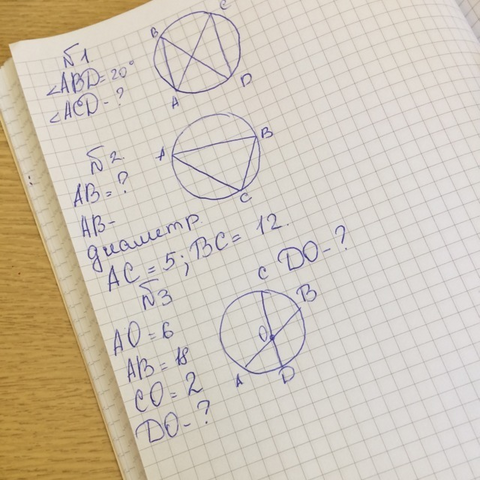 №1
∠ABD=20°
∠ACD-?
B
C
A
D
№2
AB=?
AB-
диаметр
AC=5; BC=12.
A
B
C
№3
AO=6
AB=18
CO=2
DO-?
DO-?
C
B
O
A
D